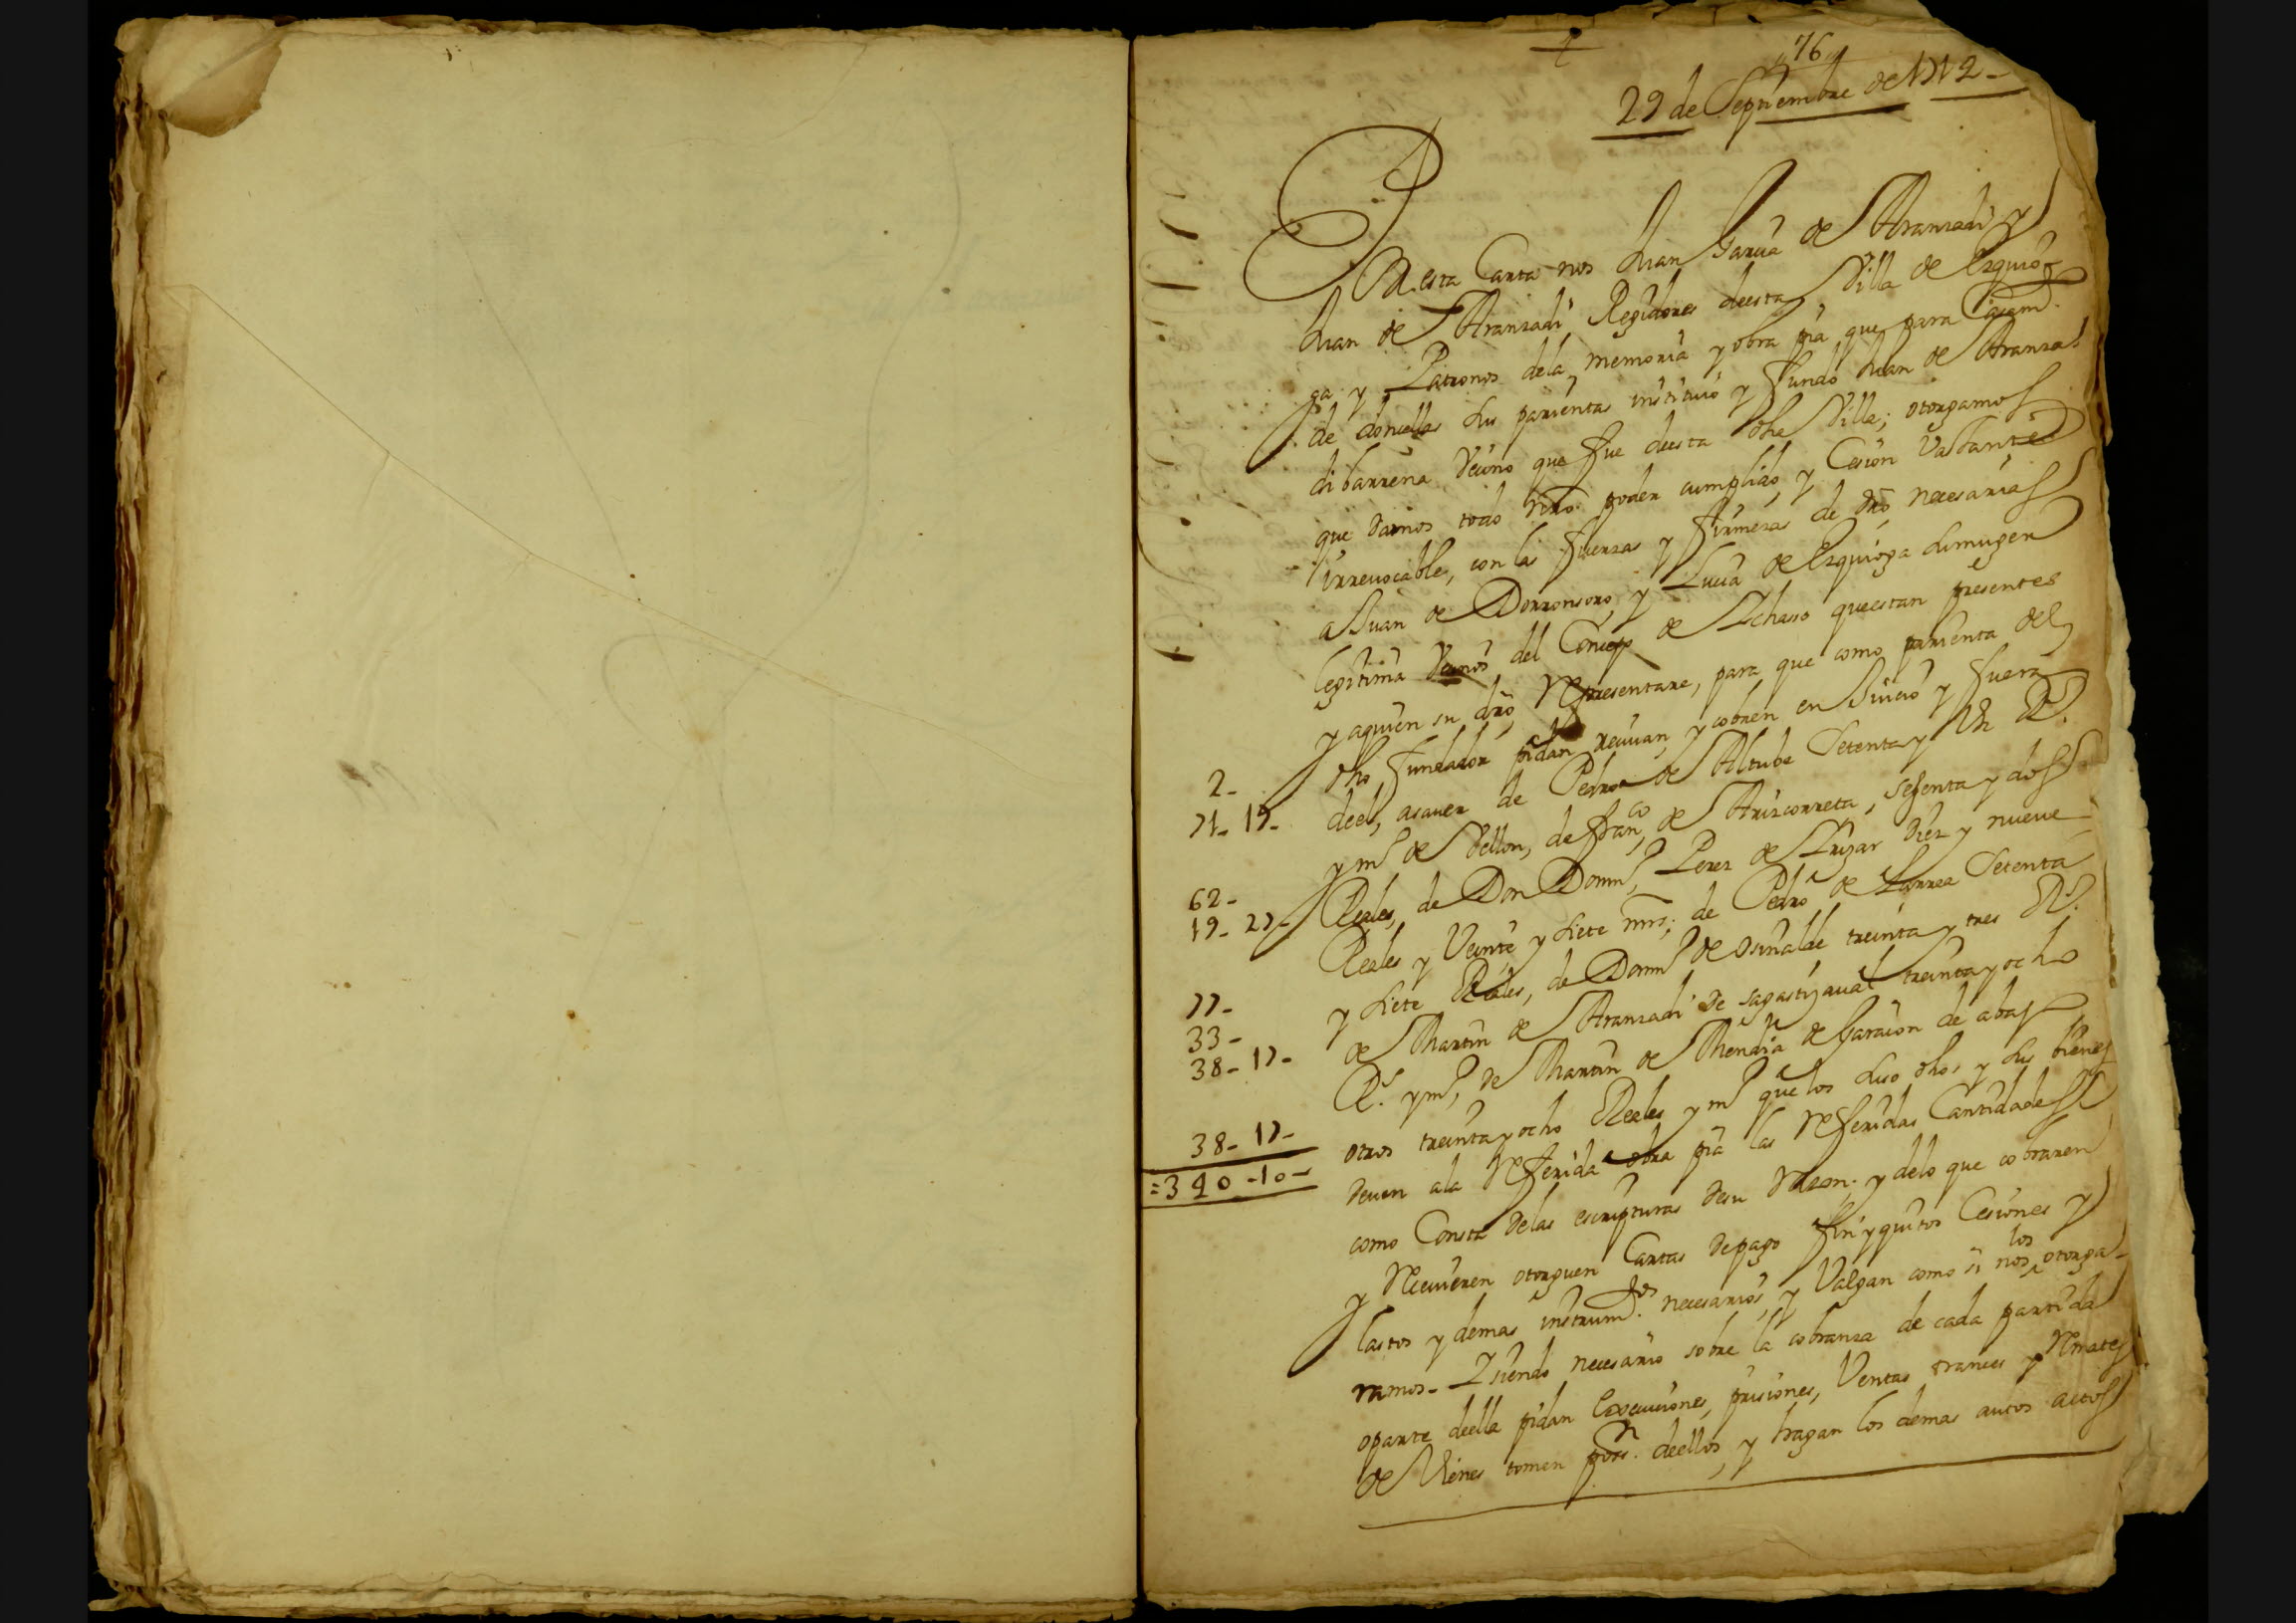 76
29 de Septiembre de 1712 -
Por esta Carta nos Juan Garcia de Aranzadi y
Juan de Aranzadi Regidores deesta Villa de Ezquio-
ga y Patronos dela memoria y obra pia que para Casam.
de doncellas sus parientas instituio y fundo Juan de Aranza
di barrena Vecino que fue deesta dha Villa; otorgamos
que damos todo nro poder cumplido y Cesion Vastante
irreuocable, con las fuerzas y firmezas de dro necesarias
a Juan de Dorronsoro y Lucia de Ezquioga su muger
legitima Vecinos del Concejo de Ichaso queestan presentes
y aquien su dro Representare, para que como parienta del
2 -
dho fundador pidan reciuan y cobren en Juicio y fuera
71 - 17 -
deel, asauer de Pedro de Altube Setenta y Un Rs.
y mo de Vellon, de Franco de Arizcorreta, sesenta y dos
62 -
Reales, de Don Domingo Perez de Lizar diez y nueue
19 - 27 -
Reales y Veinte y siete mrs; de Pedro de Larrea Setenta
77 -
y siete Reales, de Domo de Osinalde treinta y tres Rs.
33 -
de Martin de Aranzadi de sagastizaual treinta y ocho
38 - 17 -
Rs. y mo, de Martin de Mendia de Garacion de abajo
38 - 17 -
otros treinta y ocho Reales y mo que los suso dhos, y sus bienes
= 340 - 10 -
deuen ala Referida obra pia las Referidas Cantidades
como Consta delas escripturas desu Razon; y delo que cobraren
y Reciuieren otorguen Cartas depago finiquitos Cesiones y
lastos y demas instrumtos necesarios, y Valgan como si nos los otorga-
ramos - I siendo necesario sobre la cobranza de cada partida
oparte deella pidan Execuciones, prisiones, Ventas trances y Rmates
de Vienes tomen posn. deellos, y hagan los demas autos actos